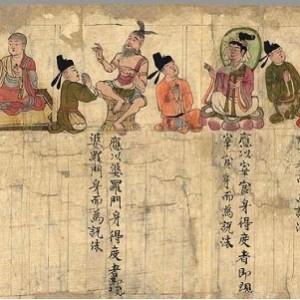 應以宰官身得度者即現
宰官身而為說法
應以婆羅門身得度者即現
婆羅門身而為說法